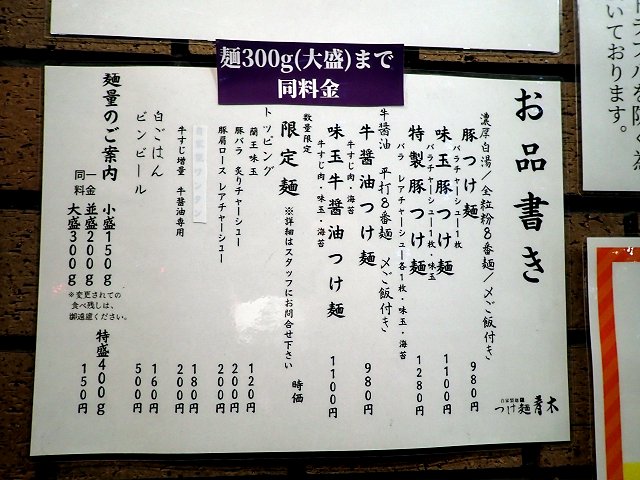 麺300g(大盛)まで
同料金
お品書き
濃厚白湯/全粒粉8番麺/〆ご飯付き
豚つけ麺 980円
バラチャーシュー1枚
味玉豚つけ麺 1100円
バラチャーシュー1枚・味玉
特製豚つけ麺 1280円
バラ レアチャーシュー各1枚・味玉・海苔
牛醤油 平打8番麺 〆ご飯付き
牛醤油つけ麺 980円
牛すじ肉・海苔
味玉牛醤油つけ麺 1100円
牛すじ肉・味玉・海苔
数量限定
限定麺 ※詳細はスタッフにお問合せ下さい 時価
トッピング
蘭王味玉 120円
豚バラ 炙りチャーシュー 200円
豚肩ロース レアチャーシュー 200円
180円
牛すじ増量 牛醤油専用 200円
白ごはん 160円
ビンビール 500円
麺量のご案内
同一料金
小盛150g
並盛200g
大盛300g
特盛400g 150円
※変更されての
食べ残しは、
御遠慮ください。
自家製麺
つけ麺 青木
いております。